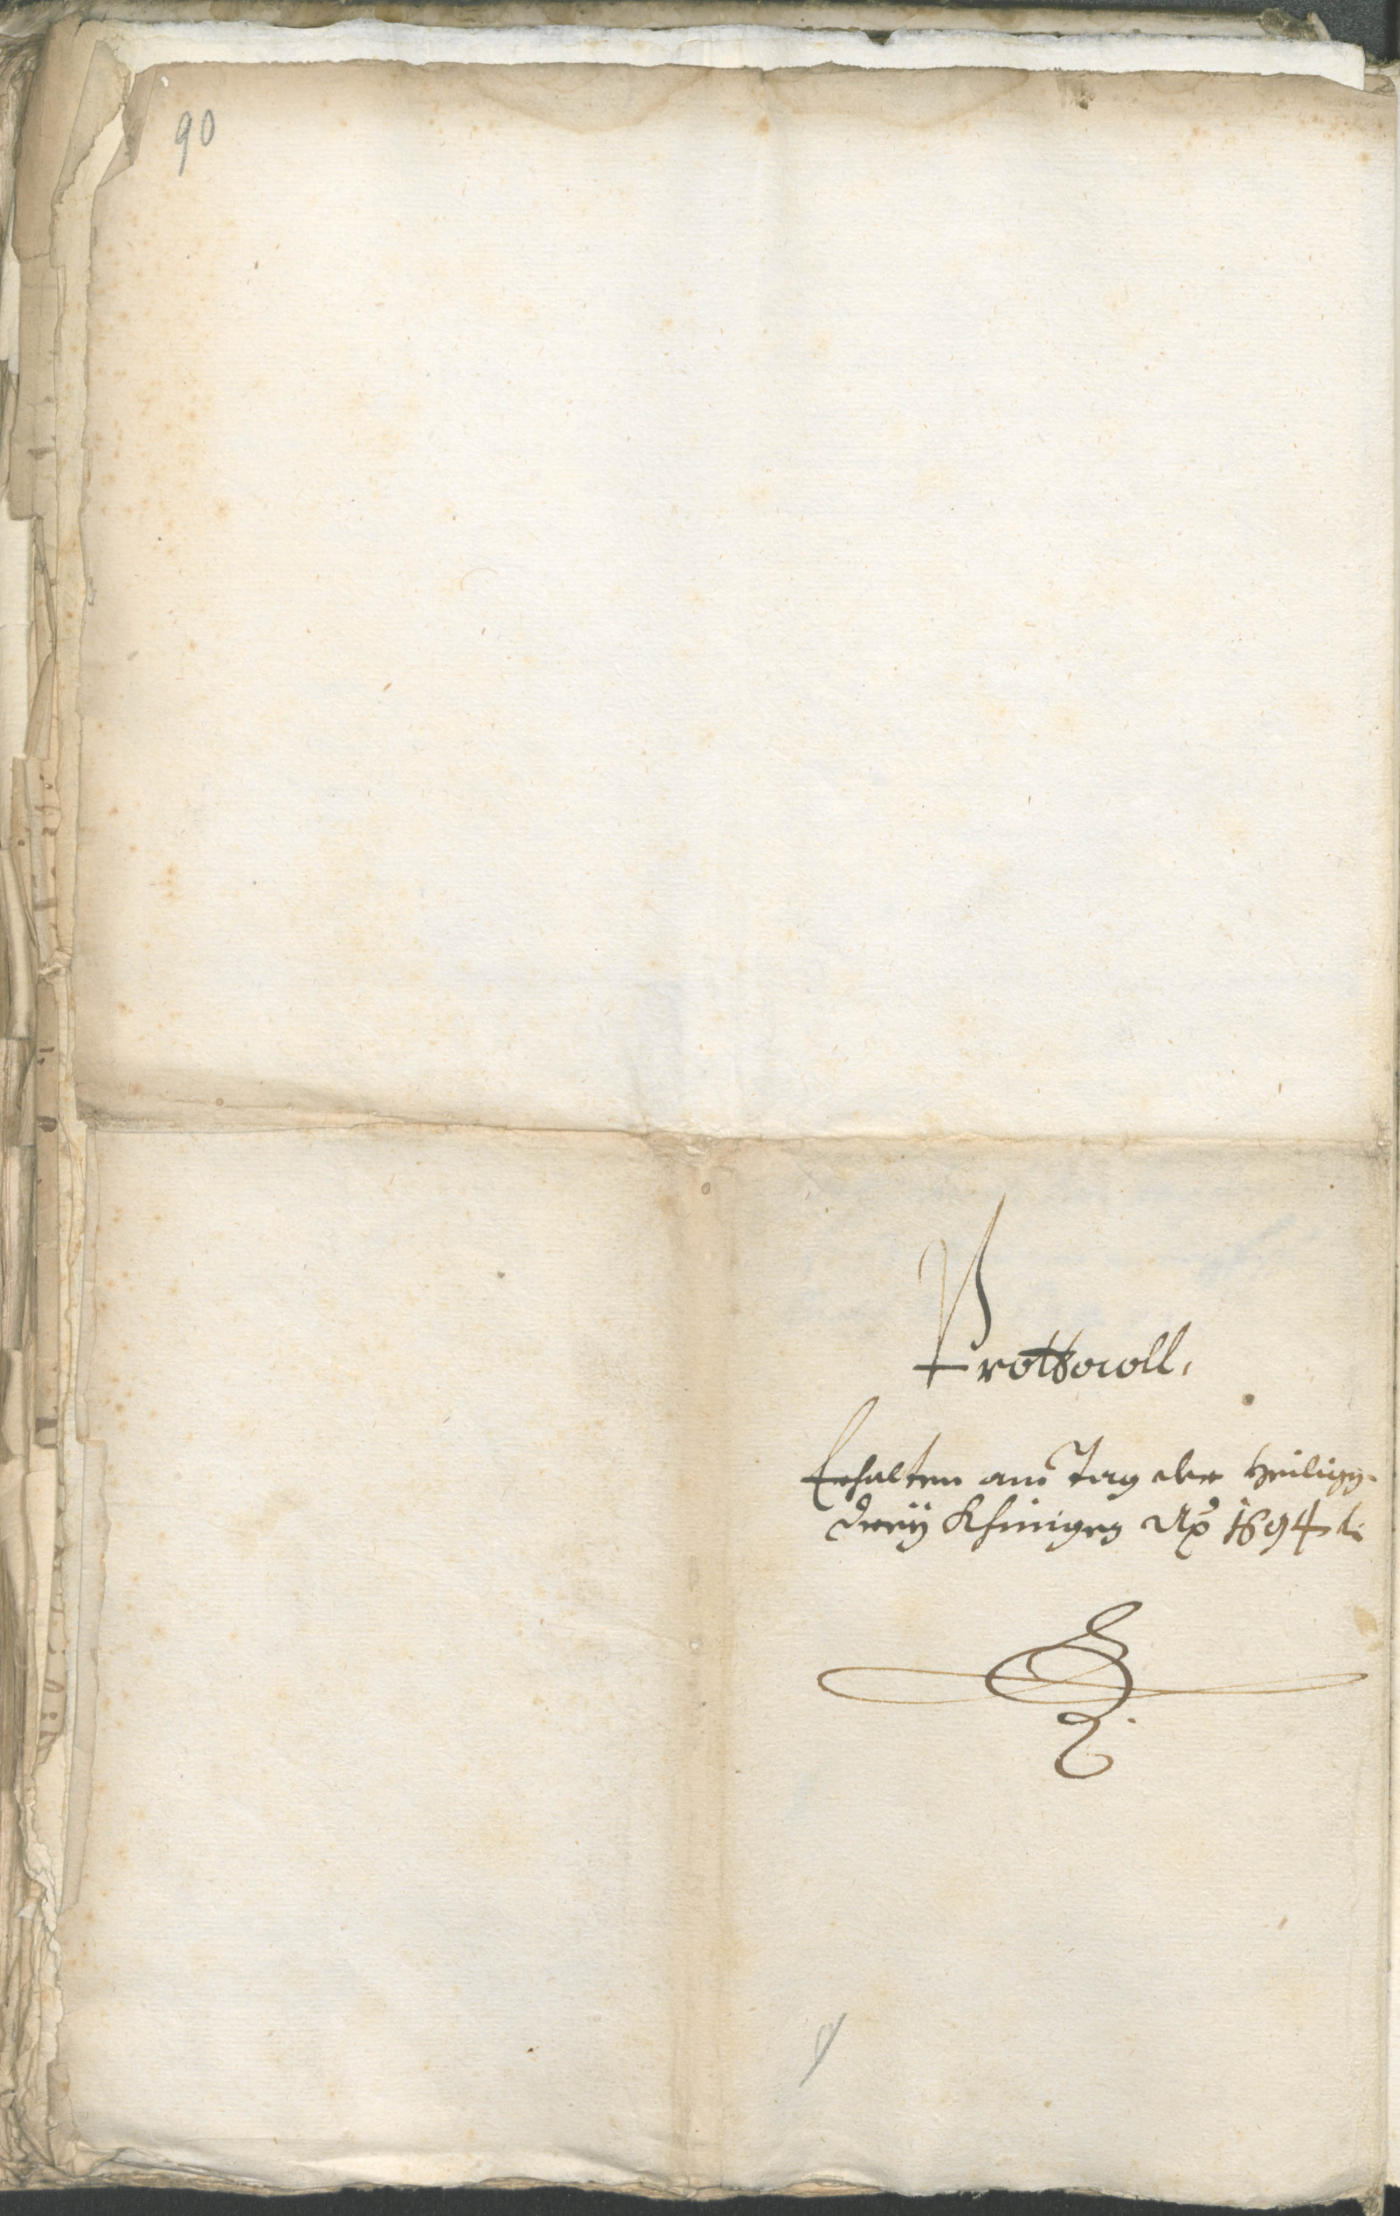 90
Prottocoll,
Erhalten am Tag der Heilig:
dreÿ Khinigen Aō 1694